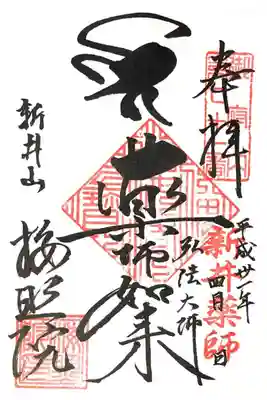 奉拝
平成廿一年四月 日
新井薬師
薬師如来
弘法大師
新井山
梅照院